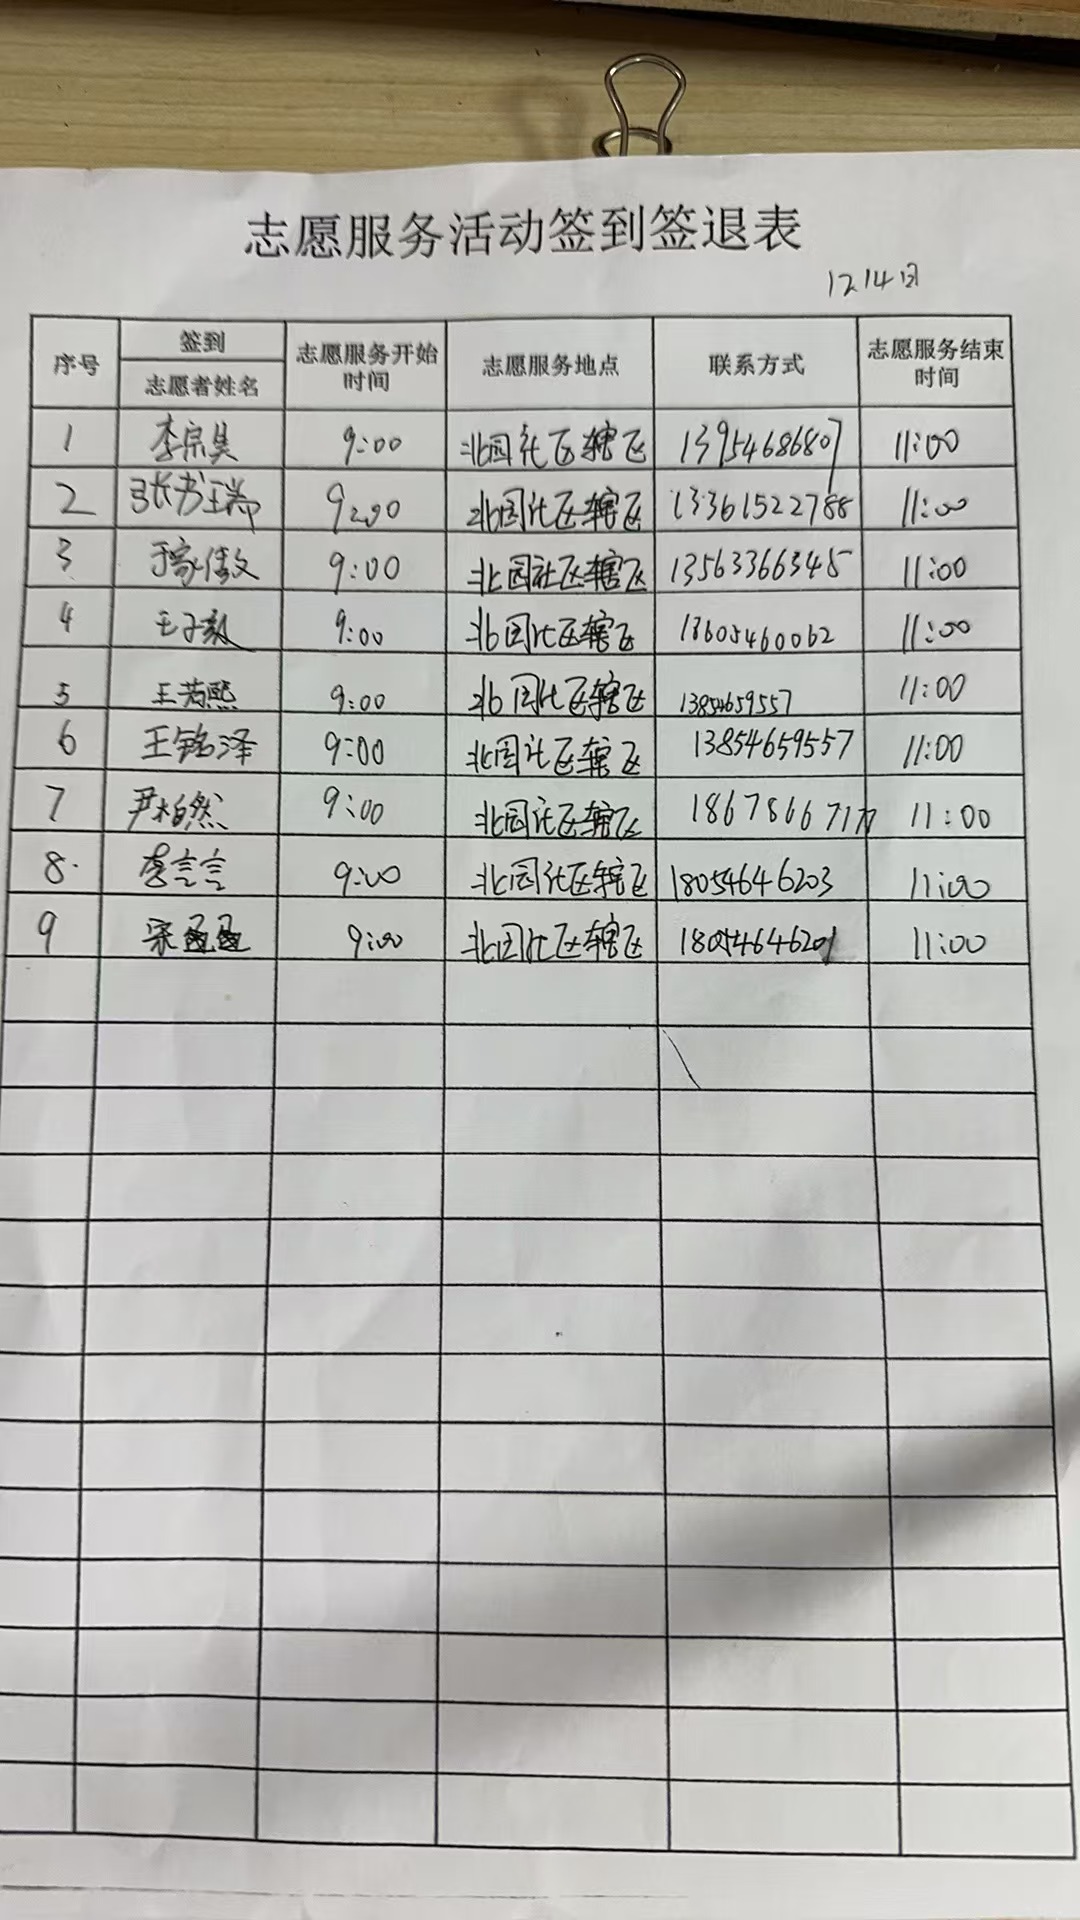 志愿服务活动签到签退表
12.14日
序号 签到 志愿者姓名 志愿服务开始时间 志愿服务地点 联系方式 志愿服务结束时间
1 李宗昊 9:00 北园社区辖区 13954686807 11:00
2 张书瑞 9:00 北园社区辖区 13361522788 11:00
3 于家傲 9:00 北园社区辖区 13563366345 11:00
4 王子毅 9:00 北园社区辖区 18605460062 11:00
5 王芮熙 9:00 北园社区辖区 13854659557 11:00
6 王铭泽 9:00 北园社区辖区 13854659557 11:00
7 尹柏然 9:00 北园社区辖区 11:00
8. 李言言 9:00 北园社区辖区 18054646203 11:00
9 宋 9:00 北园社区辖区 18054646201 11:00